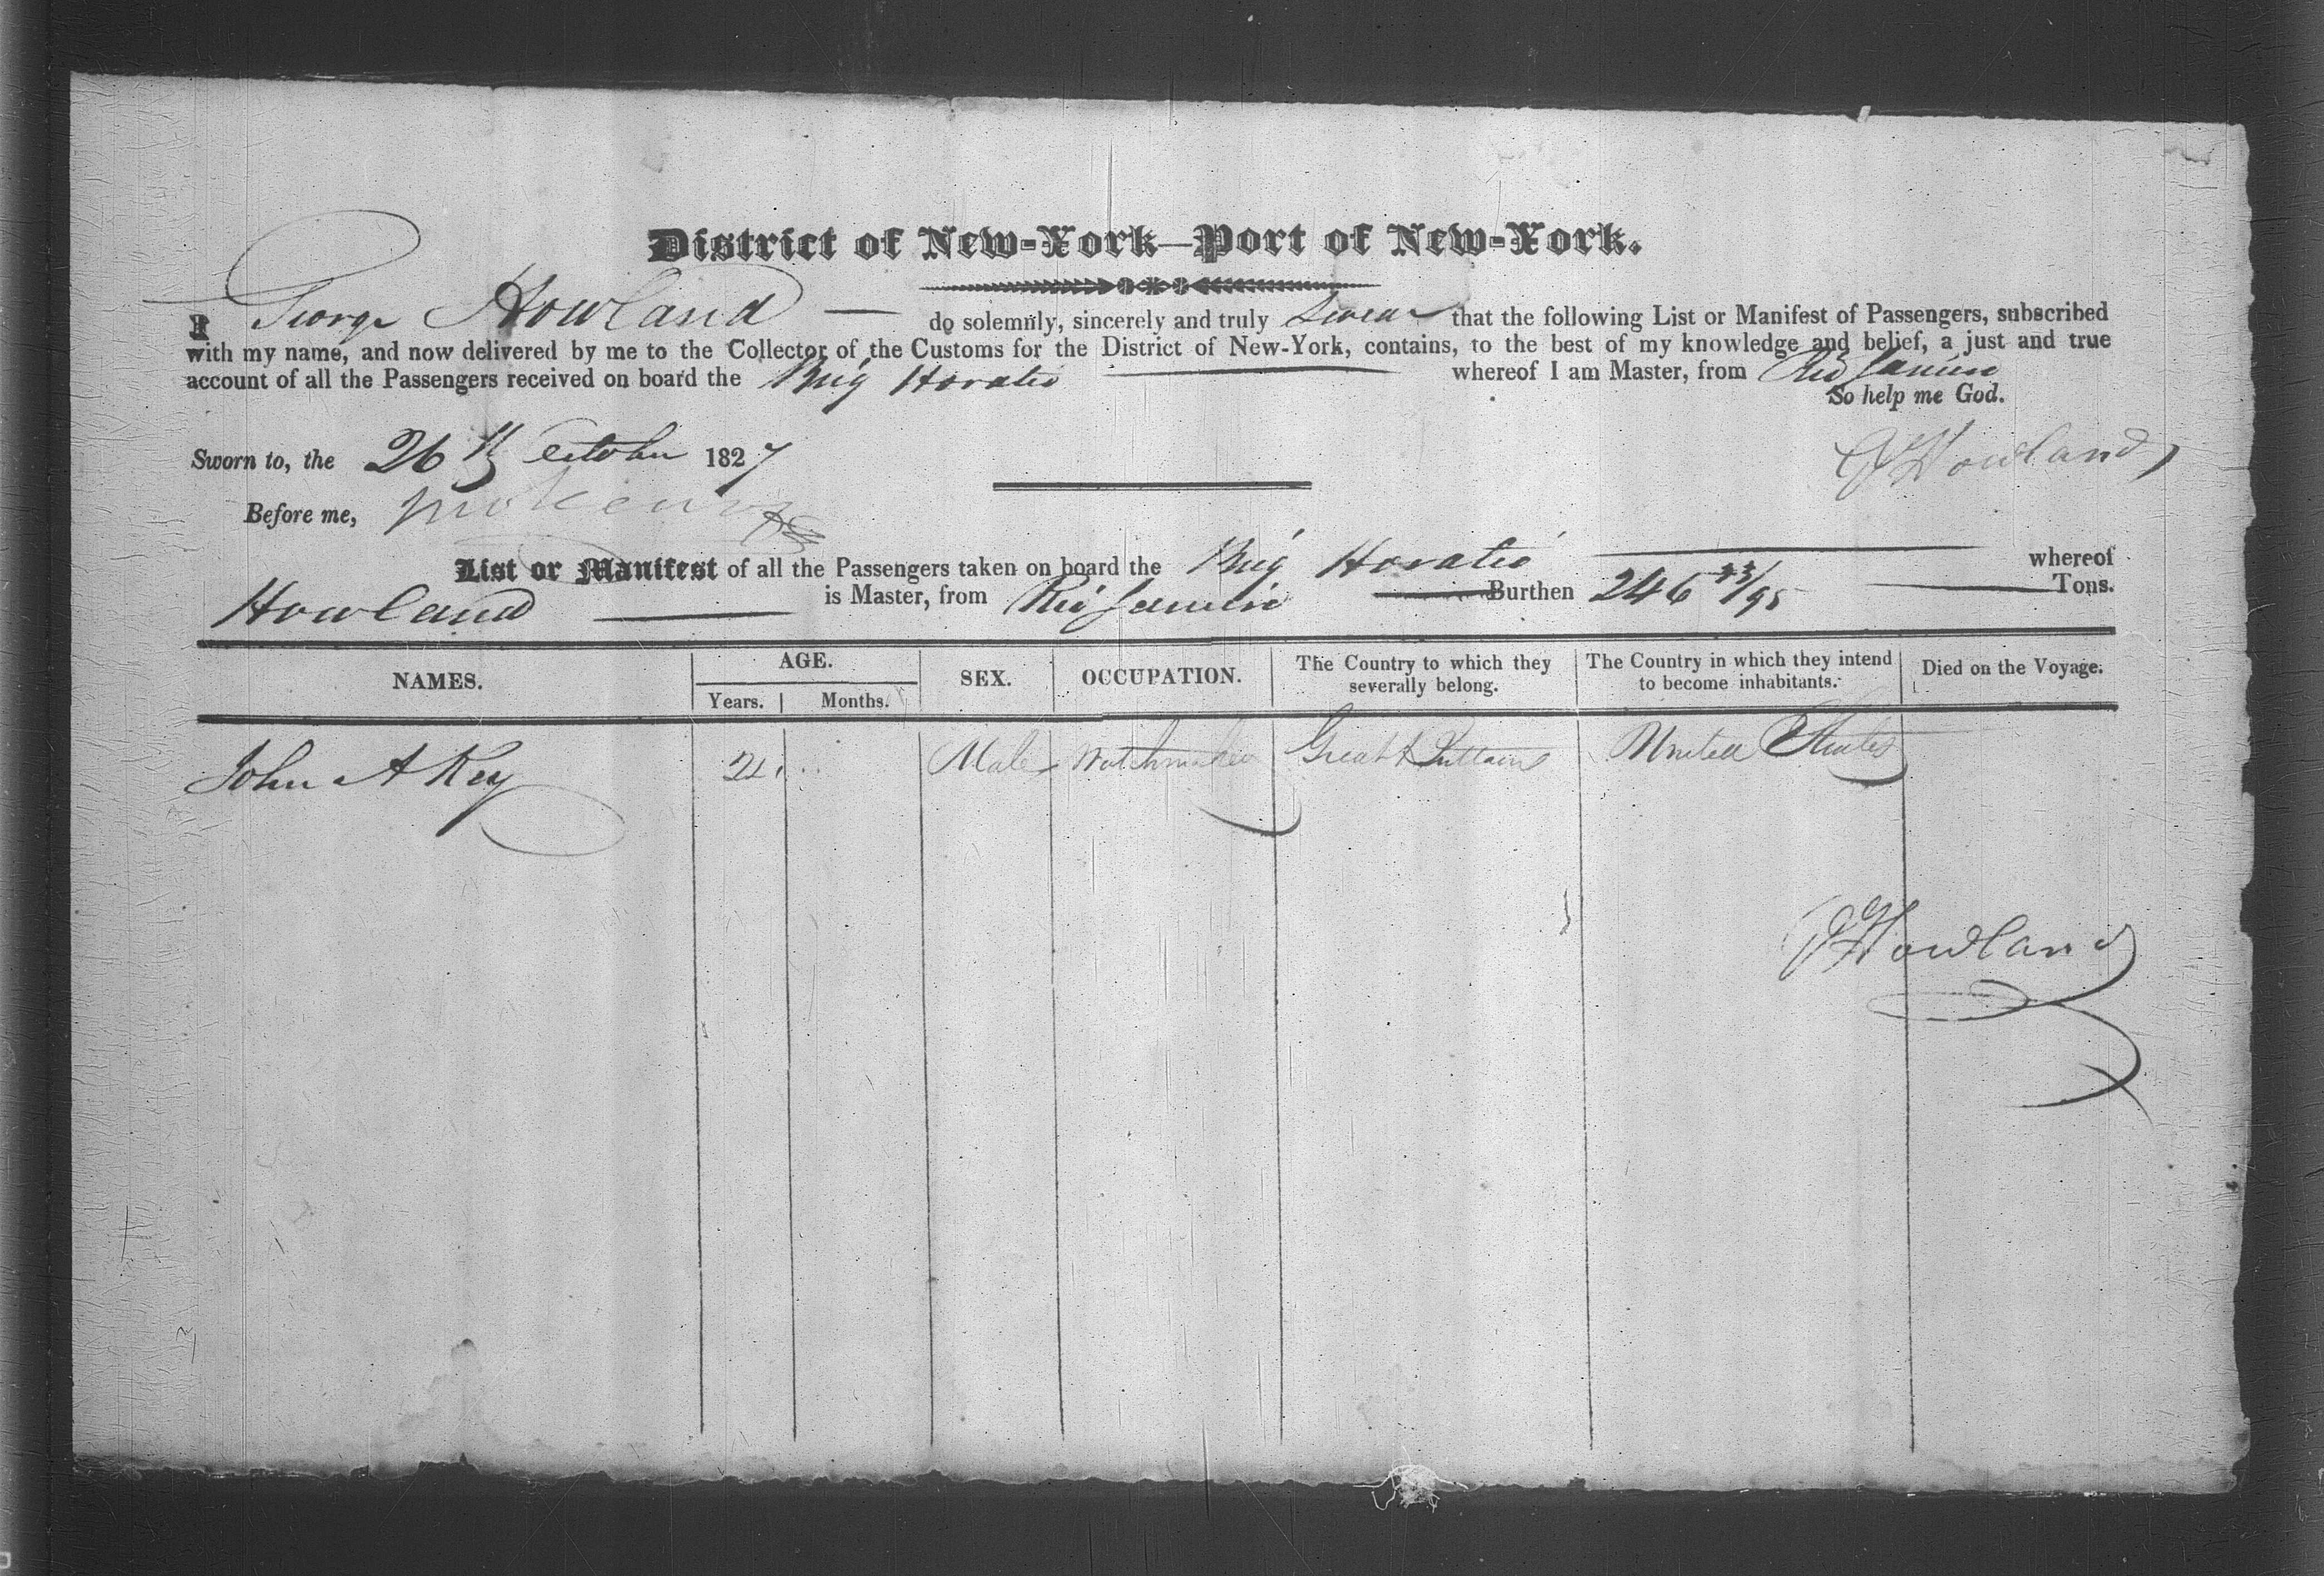 District of New-York—Port of New-York.
I George Howland — do solemnly, sincerely and truly swear that the following List or Manifest of Passengers, subscribed
with my name, and now delivered by me to the Collector of the Customs for the District of New-York, contains, to the best of my knowledge and belief, a just and true
account of all the Passengers received on board the Brig Horatio whereof I am Master, from Rio Janeiro
So help me God.
Sworn to, the 26th October 1827
G Howland
Before me,
List or Manifest of all the Passengers taken on board the Brig Horatio whereof
Howland is Master, from Rio Janeiro Burthen 246 33/95 Tons.
NAMES. AGE. SEX. OCCUPATION. The Country to which they severally belong. The Country in which they intend to become inhabitants. Died on the Voyage.
Years. Months.
John A Key 21 Male Watchmaker Great Brittain United States
G Howland